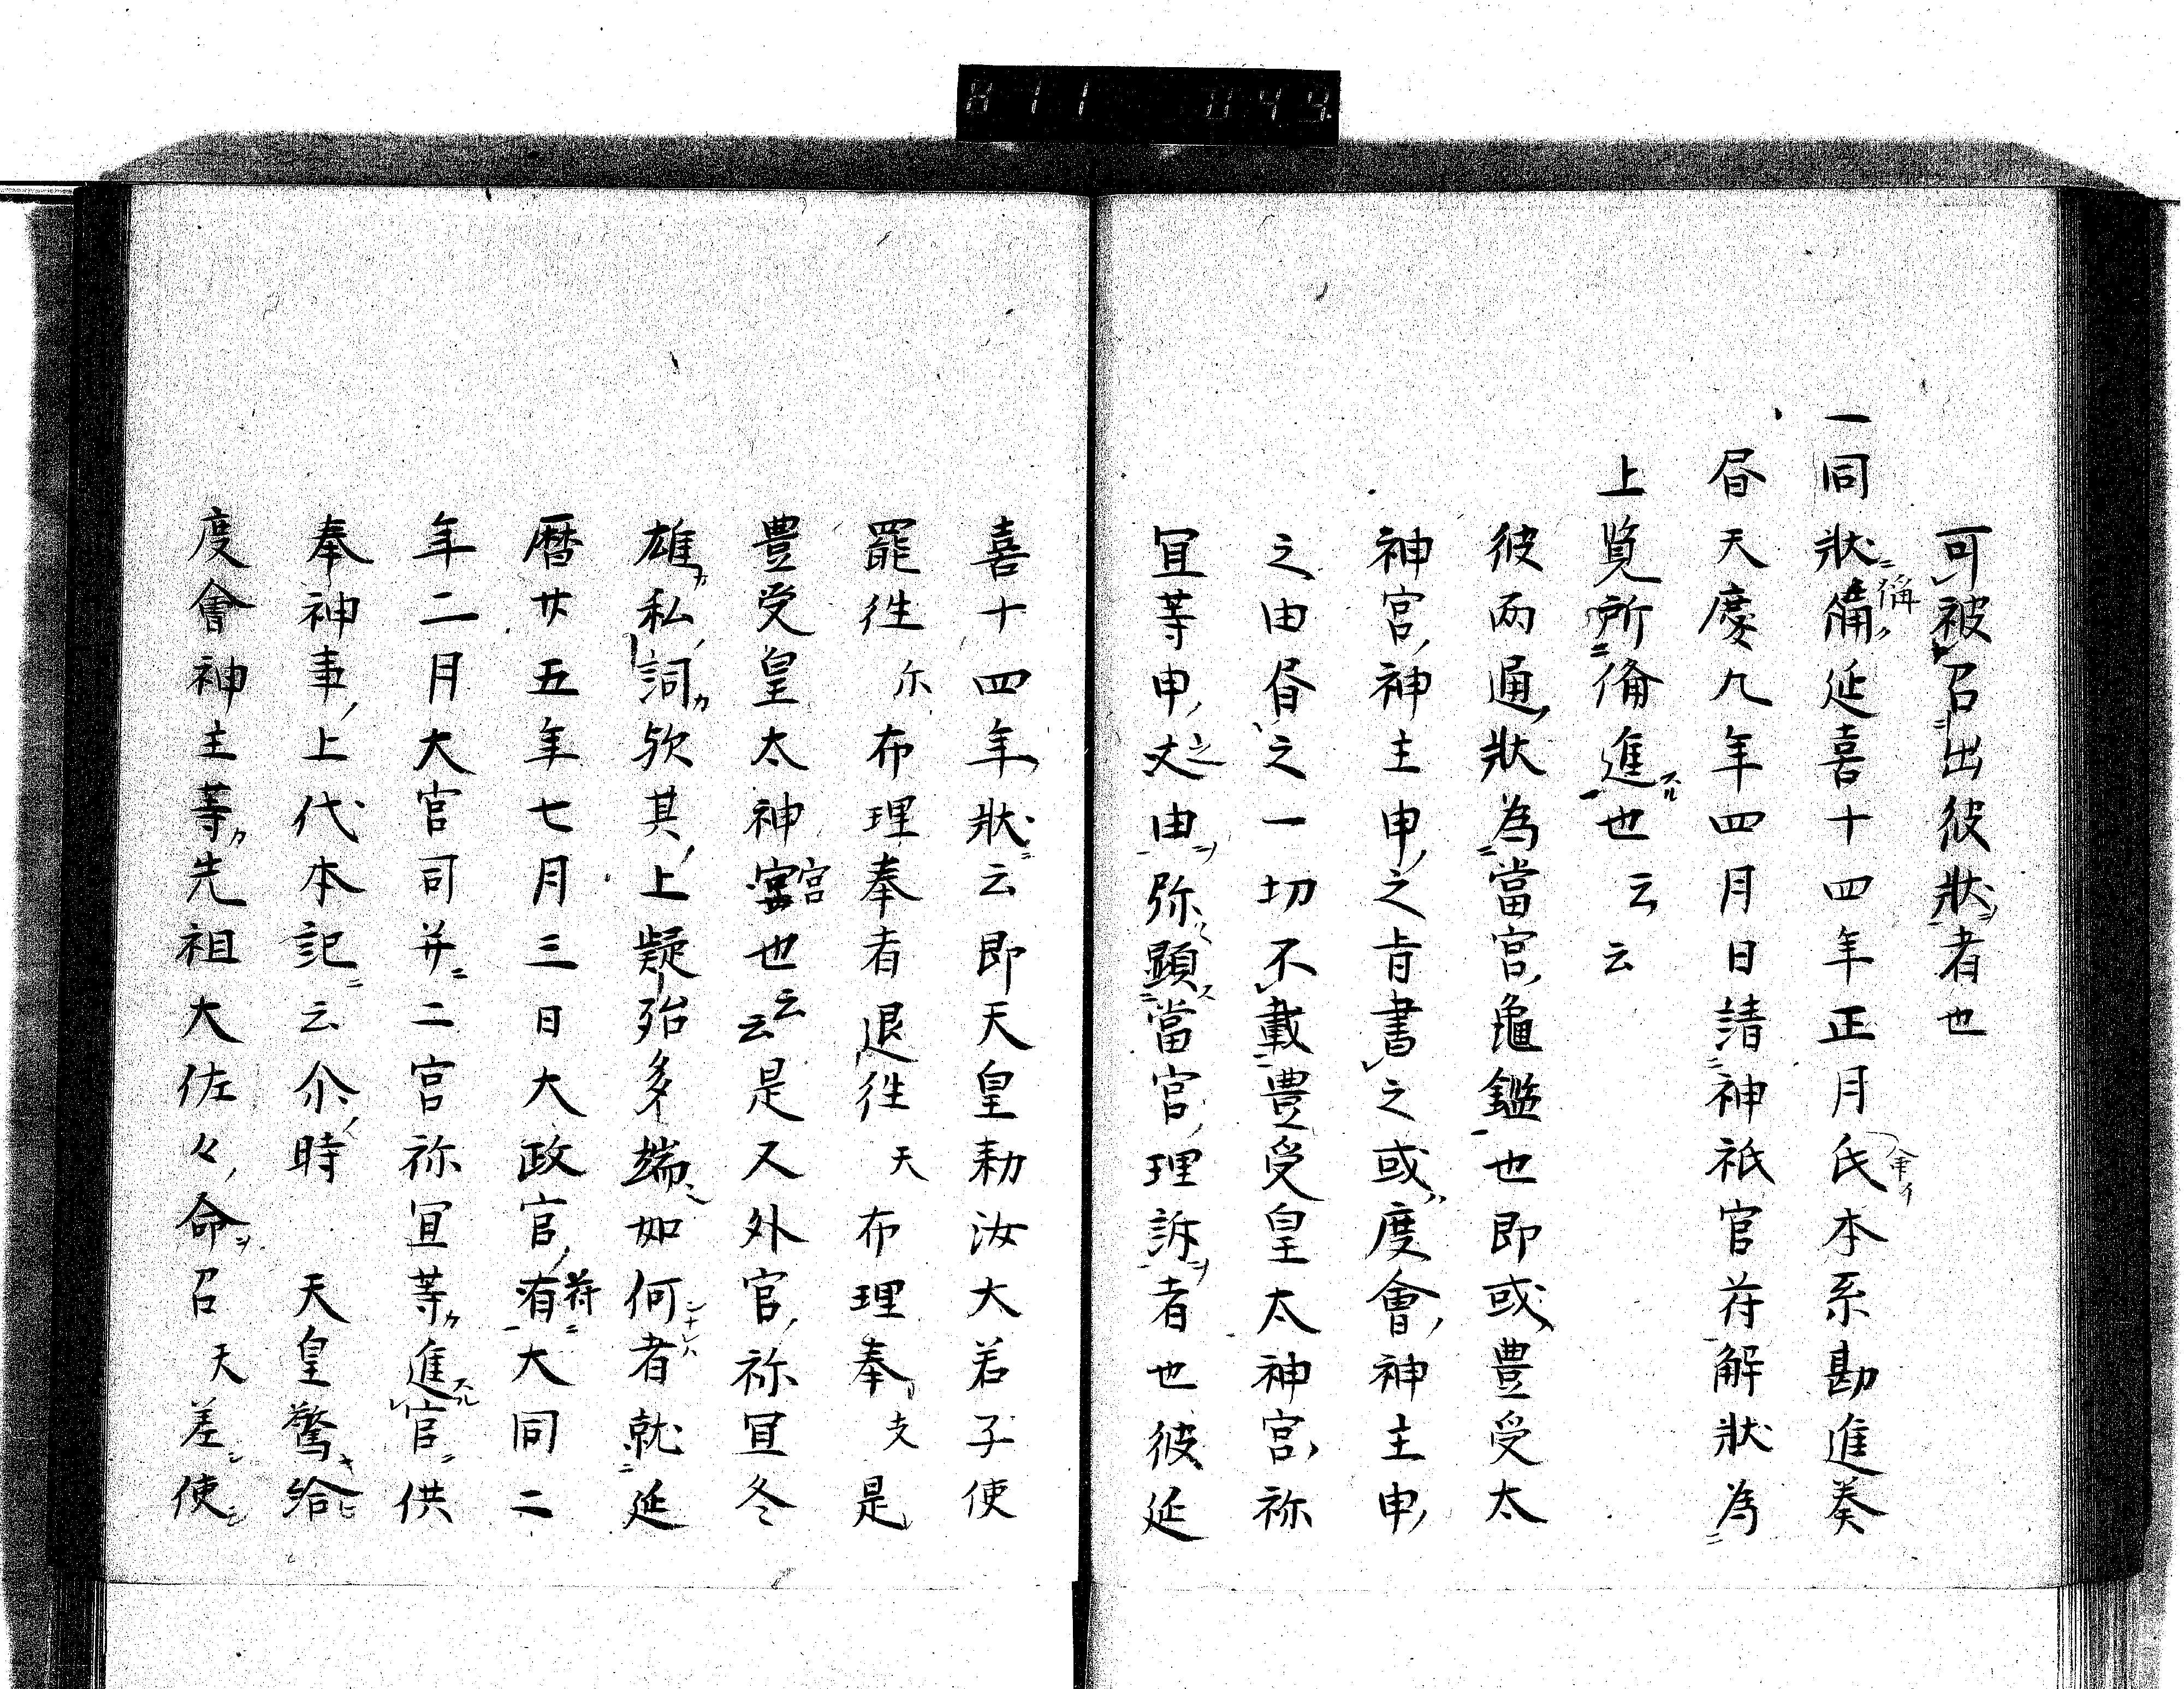 可被召出彼狀者也
一同狀偁延喜十四年正月氏本系勘進奏
昏天慶九年四月日請神祇官苻解狀為
上覽所脩進也云云
彼兩通狀為當宮龜鑑也即或豊受太
神宮神主申之旨書之或度會神主申
之由昏之一切不載豊受皇太神宮祢
冝等申之由弥顕當宮理訴者也彼延
喜十四年狀云即天皇勅汝大若子使
罷徃尓布理奉者退徃天布理奉支是
豊受皇太神宮也云云是又外宮祢冝冬
雄私詞欤其上疑殆多端如何者就延
暦廿五年七月三日大政官苻大同二
年二月大宮司并二宮祢冝等進官供
奉神事上代本記云尒時　天皇驚給
度會神主等先祖大佐々命召天差使